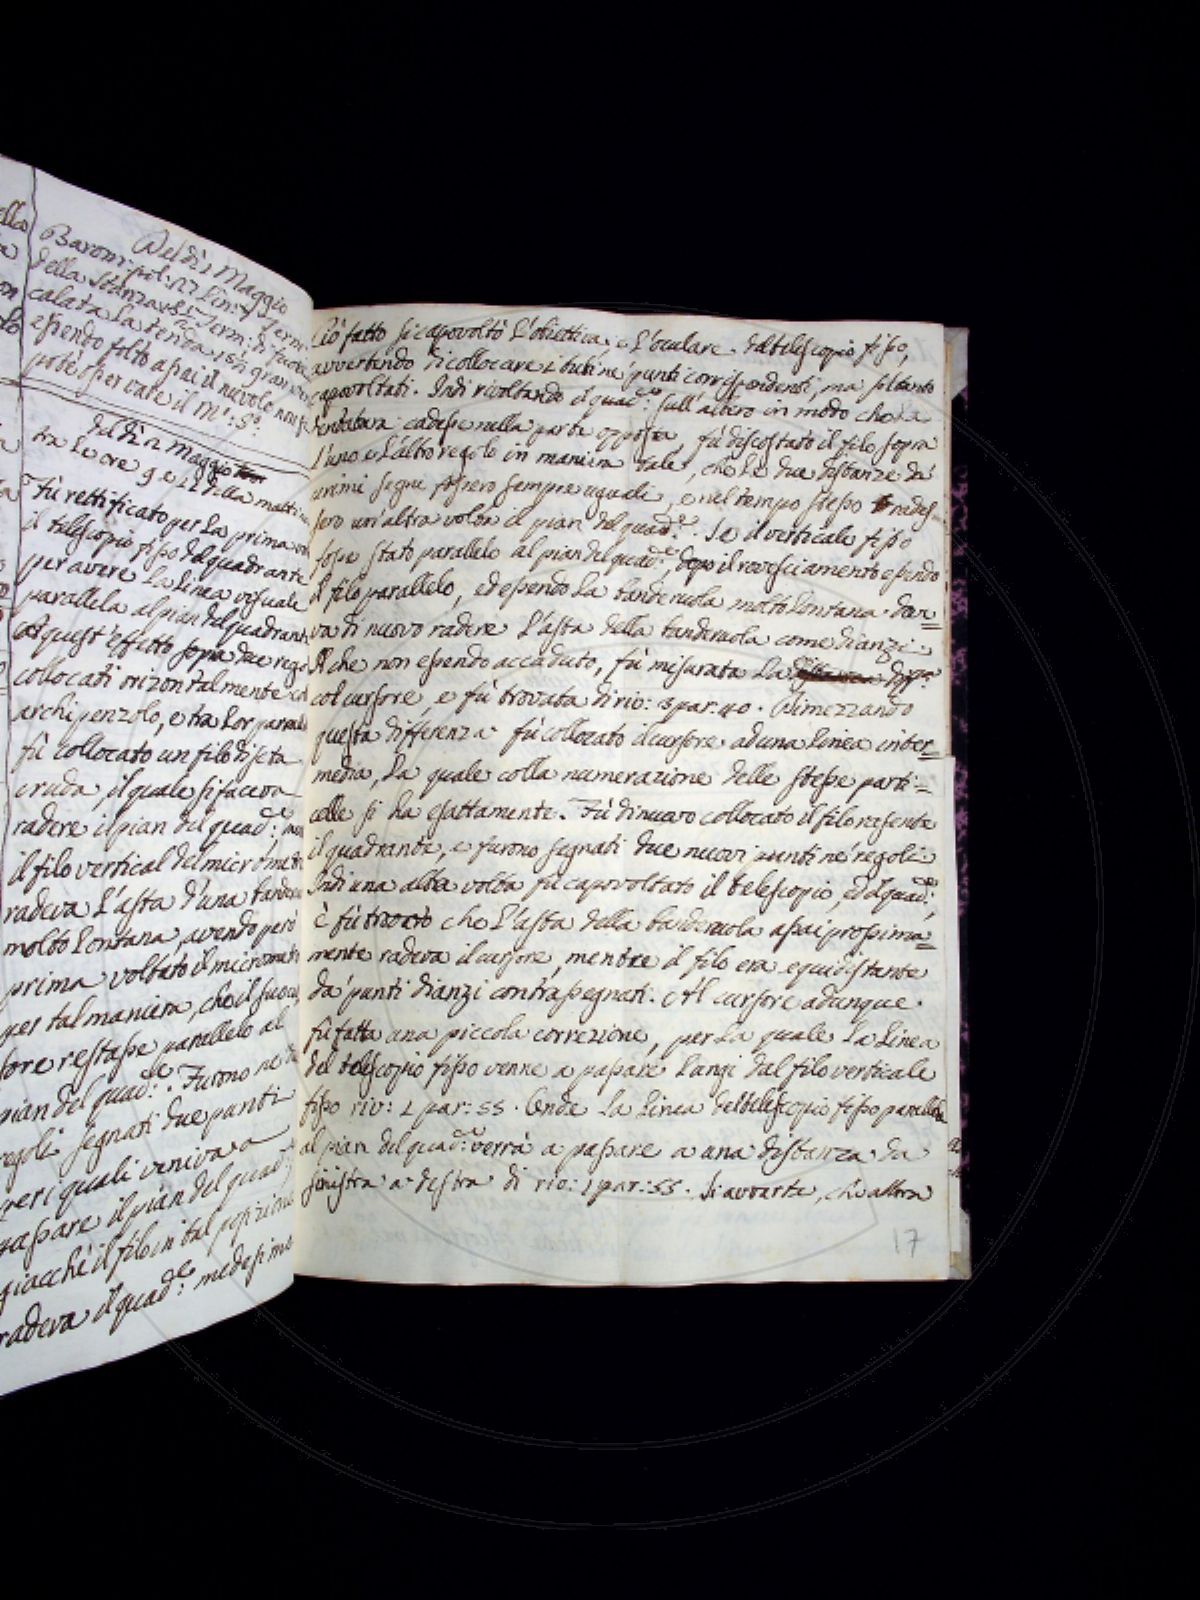 Del dì 1 Maggio
Barom: pol: 27 lin: 7 Term:
della Stanza + 8½ Term: di fuori
calata la tenda 15½ gran
essendo folto assai il nuvolo non si
potè osservare il M.º: S.º
del dì 2 Maggio
tra le ore 9 e 11 della mattina
Fù rettificato per la prima
il telescopio fisso del quadrante
per avere la linea visuale
parallela al pian del quadrante
A quest'effetto sopra due rego
collocati orizontalmente col
archipenzolo, e tra lor paralel
fù collocato un filo di seta
cruda, il quale si faceva
radere il pian del quad.e:
il filo vertical del micrometro
radeva l'asta d'una bande
molto lontana, avendo però
prima voltato il micromet
per tal maniera, che il suo cur
sore restasse parallelo al
pian del quad:e. Furono ne
regoli segnati due punti
peri quali veniva a
passare il pian del quad:
giacchè il filo in tal posizione
radeva il quad.e: medesimo
Ciò fatto si capovoltò l'obiettiva, e l'oculare del telescopio fisso,
avvertendo di collocare i tubi ne' punti corrispondenti, ma soltanto
capovoltati. Indi rivoltando il quad.e: sull'albero in modo che la
dentatura cadesse nella parte opposta, fù discostato il filo sopra
l'uno e l'altro regolo in maniera tale, che le due distanze da'
primi segni fossero sempre uguali, e nel tempo stesso rades
sero un'altra volta il pian del quad.e: Se il verticale fisso
fosse stato parallelo al pian del quad.e:, dopo il rovesciamento essendo
il filo parallelo, ed essendo la banderuola molto lontana dove=
va di nuovo radere l'asta della banderuola come dianzi.
Il che non essendo accaduto, fù misurata la diff.a
col cursore, e fù trovata di riv: 3 par: 40. Dimezzando
questa differenza fù collocato il cursore ad una linea inter=
media, la quale colla numerazione delle stesse parti=
celle si ha esattamente. Fù di nuovo collocato il filo rasente
il quadrante, e furono segnati due nuovi punti ne' regoli
Indi una altra volta fù capovoltato il telescopio, ed il quad.e:,
e fù trovato che l'asta della banderuola assai prossima=
mente radeva il cursore, mentre il filo era equidistante
da' punti dianzi contrassegnati. Al cursore adunque
fù fatta una piccola correzione, per la quale la linea
del telescopio fisso venne a passare lungi dal filo verticale
fisso riv: 1 par: 55. Onde la linea del telescopio fisso parallela
al pian del quad.e: verrà a passare a una distanza da
sinistra a destra di riv: 1 par: 55. Si avverte, che allora
17